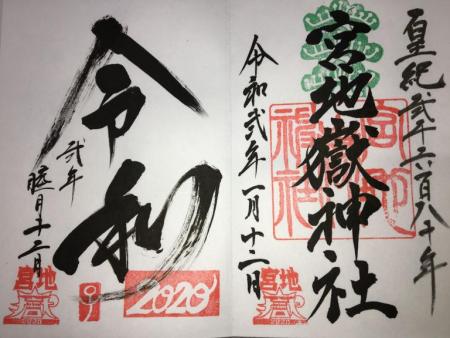 皇紀弐千六百八十年
宮地嶽神社
令和弐年一月十二日
宮地
2020
令和
弐年
睦月十二日
宮地
2020
2020